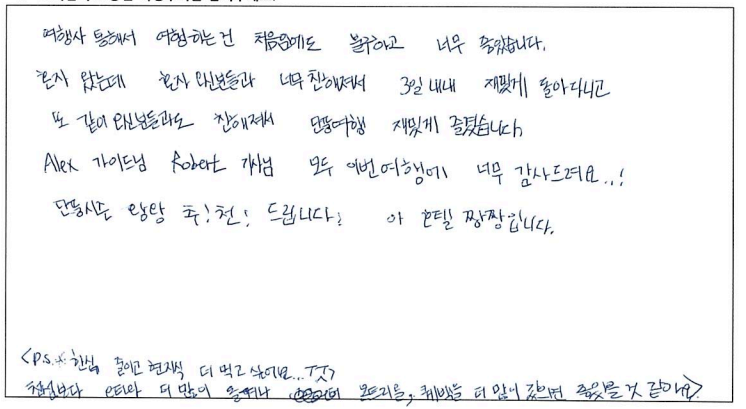 여행사 통해서 여행하는건 처음임에도 불구하고 너무 좋았습니다.
혼자 왔는데 혼자 오신분들과 너무 친해져서 3일 내내 재밌게 돌아다니고
또 같이 오신분들과도 친해져서 단풍여행 재밌게 즐겼습니다
Alex 가이드님 Robert 기사님 모두 이번여행에 너무 감사드려요..!
단풍시즌 왕왕 추!천! 드립니다! 아 호텔 짱짱입니다.
<P.S. 한식 줄이고 현지식 더 먹고 싶어요...ㅜㅜ>
보다 더 많이 몬트리올, 퀘벡을 더 많이 갔으면 좋았을 것 같아요>